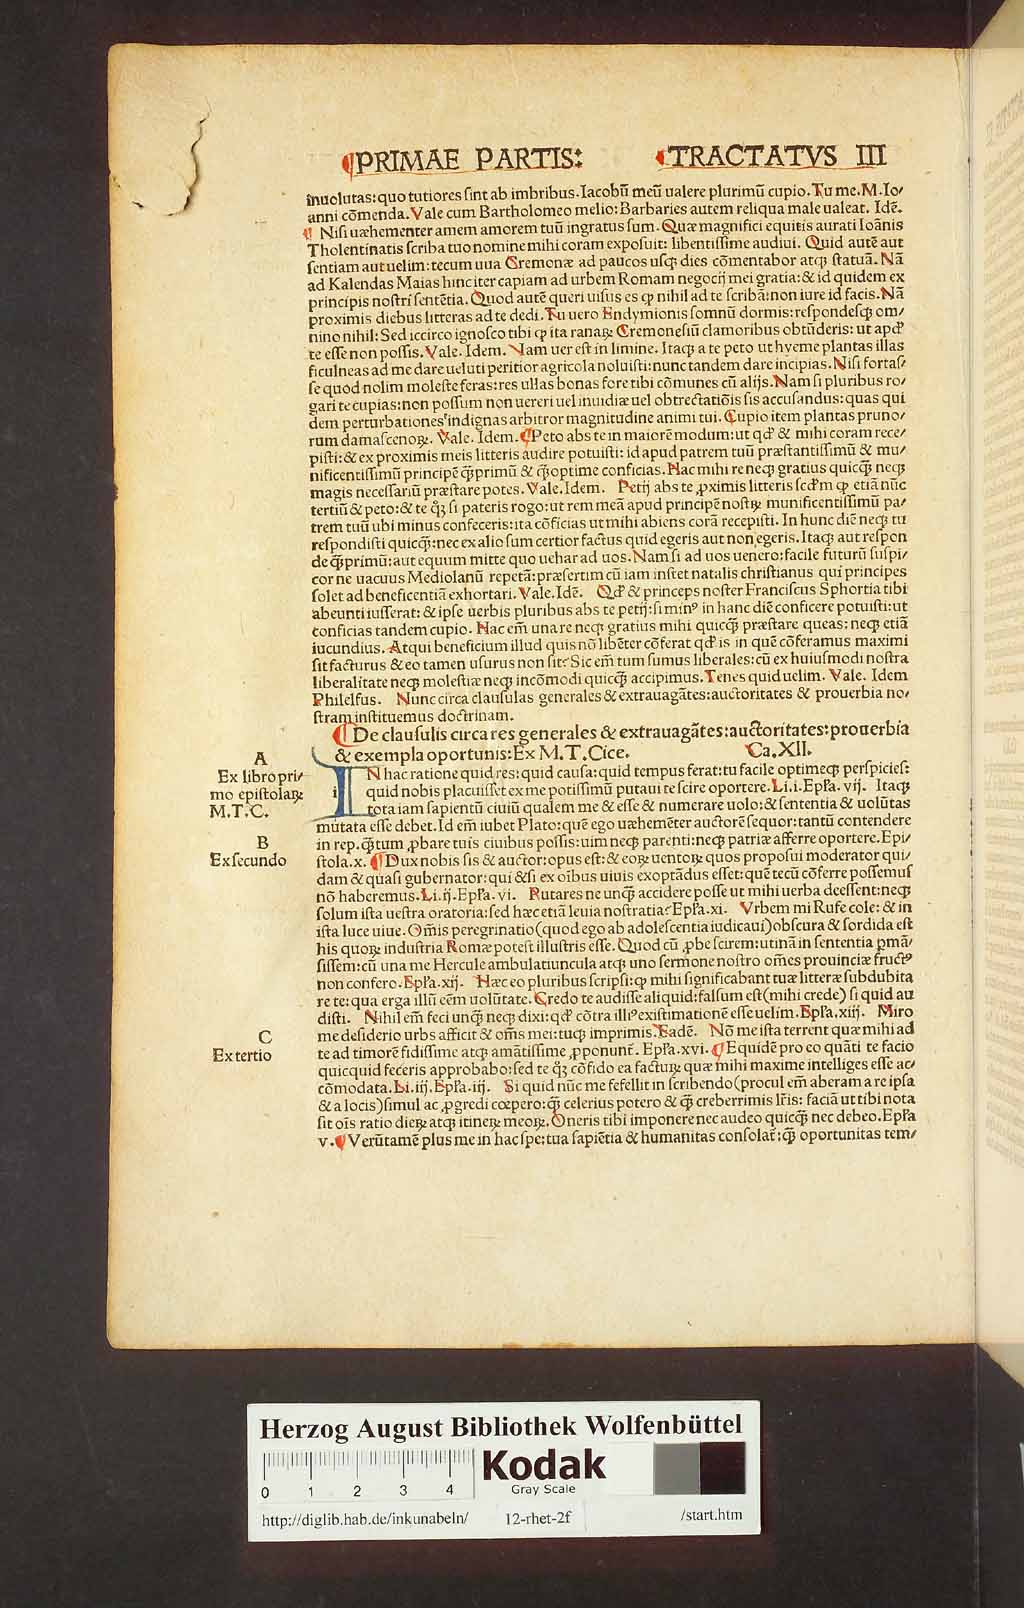 ¶PRIMAE PARTIS: ¶TRACTATVS III
inuolutas: quo tutiores sint ab imbribus. Iacobū meū ualere plurimū cupio. Tu me. M. Io/
anni cōmenda. Vale cum Bartholomeo melio: Barbaries autem reliqua male ualeat. Idē.
¶ Nisi uæhementer amem amorem tuū ingratus sum. Quæ magnifici equitis aurati Ioānis
Tholentinatis scriba tuo nomine mihi coram exposuit: libentissime audiui. Quid autē aut
sentiam aut uelim: tecum uua Cremonæ ad paucos usq; dies cōmentabor atq; statuā. Nā
ad Kalendas Maias hinc iter capiam ad urbem Romam negocij mei gratia: & id quidem ex
principis nostri sentētia. Quod autē queri uisus es ꝙ nihil ad te scribā: non iure id facis. Nā
proximis diebus litteras ad te dedi. Tu uero Endymionis somnū dormis: respondesq; om/
nino nihil: Sed iccirco ignosco tibi ꝙ ita ranaꝝ Cremonesiū clamoribus obtūderis: ut apd̕
te esse non possis. Vale. Idem. Nam uer est in limine. Itaq; a te peto ut hyeme plantas illas
ficulneas ad me dare ueluti peritior agricola noluisti: nunc tandem dare incipias. Nisi fortas/
se quod nolim moleste feras: res ullas bonas fore tibi cōmunes cū alijs. Nam si pluribus ro/
gari te cupias: non possum non uereri uel inuidiæ uel obtrectatiōis sis accusandus: quas qui
dem perturbationes indignas arbitror magnitudine animi tui. Cupio item plantas pruno/
rum damascenoꝝ. Vale. Idem. ¶Peto abs te in maiorē modum: ut qd̕ & mihi coram rece/
pisti: & ex proximis meis litteris audire potuisti: id apud patrem tuū præstantissimū & mu/
nificentissimū principē q̄primū & q̄optime conficias. Hac mihi re neq; gratius quicq̄ neq;
magis necessariū præstare potes. Vale. Idem. Petij abs te ꝓximis litteris scd̕m ꝙ etiā nūc
tertiū & peto: & te qʒ si pateris rogo: ut rem meā apud principē nostꝝ munificentissimū pa/
trem tuū ubi minus confeceris: ita cōficias ut mihi abiens corā recepisti. In hunc diē neq; tu
respondisti quicq̄: nec ex alio sum certior factus quid egeris aut non egeris. Itaq; aut respon
de q̄primū: aut equum mitte quo uehar ad uos. Nam si ad uos uenero: facile futurū suspi/
cor ne uacuus Mediolanū repetā: præsertim cū iam instet natalis christianus qui principes
solet ad beneficentiā exhortari. Vale. Idē. Qd̕ & princeps noster Franciscus Sphortia tibi
abeunti iusserat: & ipse uerbis pluribus abs te petij: si minꝰ in hanc diē conficere potuisti: ut
conficias tandem cupio. Hac em̄ una re neq; gratius mihi quicq̄ præstare queas: neq; etiā
iucundius. Atqui beneficium illud quis nō libēter cōferat qd̕ is in quē cōferamus maximi
sit facturus & eo tamen usurus non sit? Sic em̄ tum sumus liberales: cū ex huiusmodi nostra
liberalitate neq; molestiæ neq; incōmodi quicq̄ accipimus. Tenes quid uelim. Vale. Idem
Philelfus. Nunc circa clausulas generales & extrauagātes: auctoritates & prouerbia no/
stram instituemus doctrinam.
¶De clausulis circa res generales & extrauagātes: auctoritates: prouerbia
& exempla oportunis: Ex M. T. Cice. Ca. XII.
A
Ex libro pri/
mo epistolaꝝ
M. T. C.
IN hac ratione quid res: quid causa: quid tempus ferat: tu facile optimeq; perspicies:
quid nobis placuisset ex me potissimū putaui te scire oportere. Li. i. Epl̕a. vij. Itaq;
tota iam sapientū ciuiū qualem me & esse & numerare uolo: & sententia & uolūtas
mutata esse debet. Id em̄ iubet Plato: quē ego uæhemēter auctorē sequor: tantū contendere
in rep. q̄tum ꝓbare tuis ciuibus possis: uim neq; parenti: neq; patriæ afferre oportere. Epi/
B
Ex secundo
stola. x. ¶Dux nobis sis & auctor: opus est: & eoꝝ uentoꝝ quos proposui moderator qui/
dam & quasi gubernator: qui & si ex oībus uiuis exoptādus esset: quē tecū cōferre possemus
nō haberemus. Li. ij. Epl̕a. vi. Putares ne unq̄ accidere posse ut mihi uerba deessent: neq;
solum ista uestra oratoria: sed hæc etiā leuia nostratia? Epl̕a. xi. Vrbem mi Rufe cole: & in
ista luce uiue. Om̄is peregrinatio (quod ego ab adolescentia iudicaui) obscura & sordida est
his quoꝝ industria Romæ potest illustris esse. Quod cū ꝓbe scirem: utinā in sententia ꝑmā/
sissem: cū una me Hercule ambulatiuncula atq; uno sermone nostro om̄es prouinciæ fructꝰ
non confero. Epl̕a. xij. Hæc eo pluribus scripsi: ꝙ mihi significabant tuæ litteræ subdubita
re te: qua erga illū eēm uolūtate. Credo te audisse aliquid: falsum est (mihi crede) si quid au
disti. Nihil em̄ feci unq̄ neq; dixi: qd̕ cōtra illiꝰ existimationē esse uelim. Epl̕a. xiij. Miro
me desiderio urbs afficit & om̄s mei: tuq; imprimis. Eadē. Nō me ista terrent quæ mihi ad
C
Ex tertio
te ad timorē fidissime atq; amātissime ꝓponunt̄. Epl̕a. xvi. ¶Equidē pro eo quāti te facio
quicquid feceris approbabo: sed te qʒ cōfido ea facturꝝ quæ mihi maxime intelliges esse ac/
cōmodata. Li. iij. Epl̕a. iij. Si quid nūc me fefellit in scribendo (procul em̄ aberam a re ipsa
& a locis) simul ac ꝓgredi cœpero: q̄ celerius potero & q̄ creberrimis lr̄is: faciā ut tibi nota
sit oīs ratio dieꝝ atq; itineꝝ meoꝝ. Oneris tibi imponere nec audeo quicq̄ nec debeo. Epl̕a
v. ¶Verūtamē plus me in hac spe: tua sapiētia & humanitas consolat̄: q̄ oportunitas tem/
Herzog August Bibliothek Wolfenbüttel
0 1 2 3 4
Kodak
Gray Scale
http://diglib.hab.de/inkunabeln/ 12-rhet-2f /start.htm